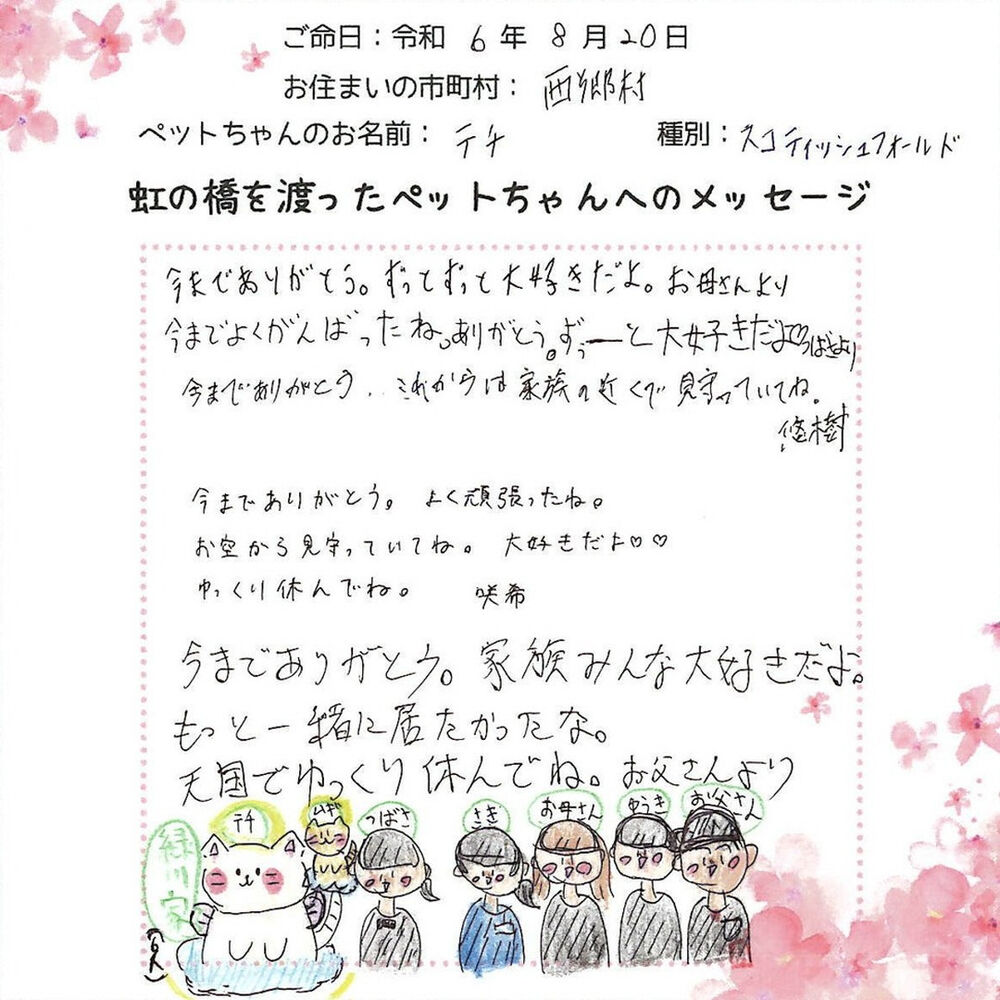 ご命日：令和 6 年 8 月 20 日
お住まいの市町村： 西郷村
ペットちゃんのお名前： テチ 種別：スコティッシュフォールド
虹の橋を渡ったペットちゃんへのメッセージ
今までありがとう。ずっとずっと大好きだよ。お母さんより
今までよくがんばったね。ありがとう。ずぅーっと大好きだよ♡つばさより
今までありがとう。これからは家族の近くで見守っていてね。
悠樹
今までありがとう。よく頑張ったね。
お空から見守っていてね。大好きだよ♡♡
ゆっくり休んでね。 咲希
今までありがとう。家族みんな大好きだよ。
もっと一緒に居たかったな。
天国でゆっくり休んでね。お父さんより
緑川家 テチ ムギ つばさ さき お母さん ゆうき お父さん